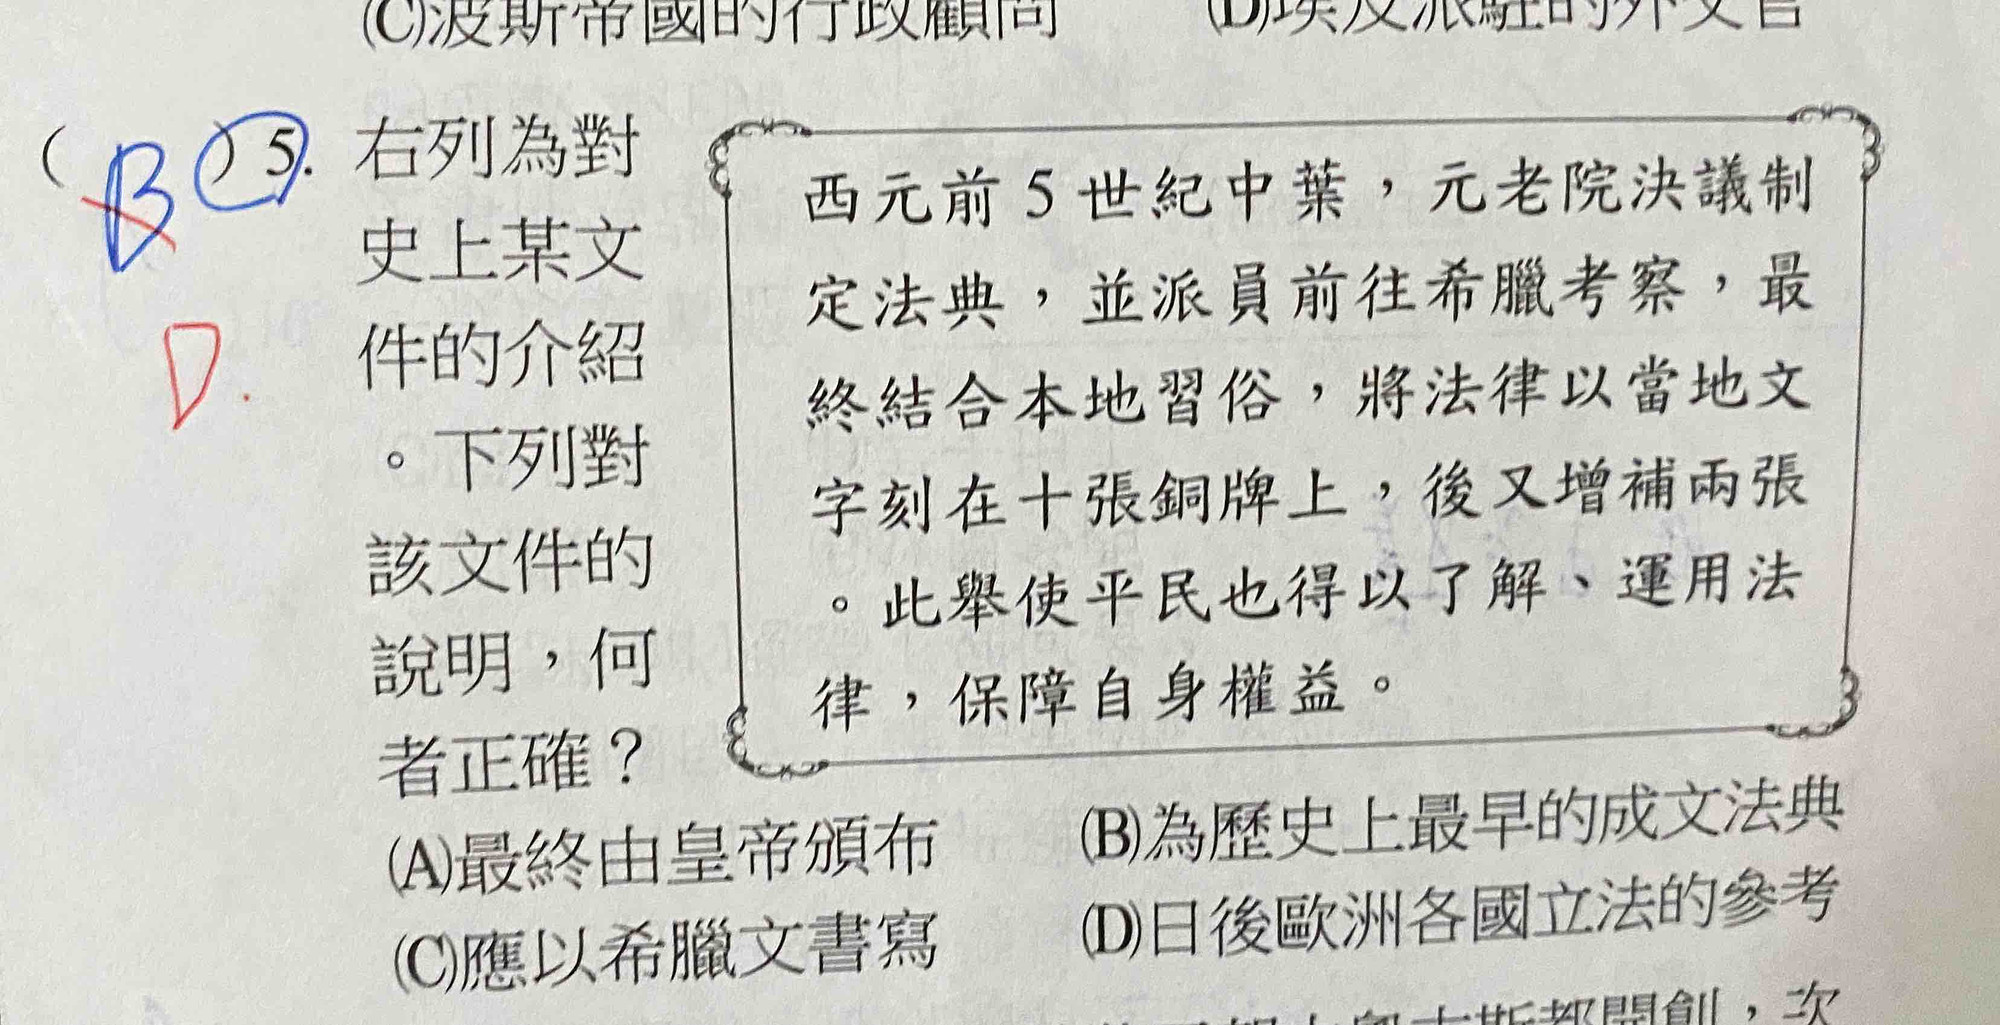 (C)波斯帝國的行政顧問 (D)埃及派駐的外交官
( B ) 5. 右列為對
史上某文
件的介紹
。下列對
該文件的
說明，何
者正確？
D.
西元前5世紀中葉，元老院決議制
定法典，並派員前往希臘考察，最
終結合本地習俗，將法律以當地文
字刻在十張銅牌上，後又增補兩張
。此舉使平民也得以了解、運用法
律，保障自身權益。
(A)最終由皇帝頒布 (B)為歷史上最早的成文法典
(C)應以希臘文書寫 (D)日後歐洲各國立法的參考
斯都開創，次